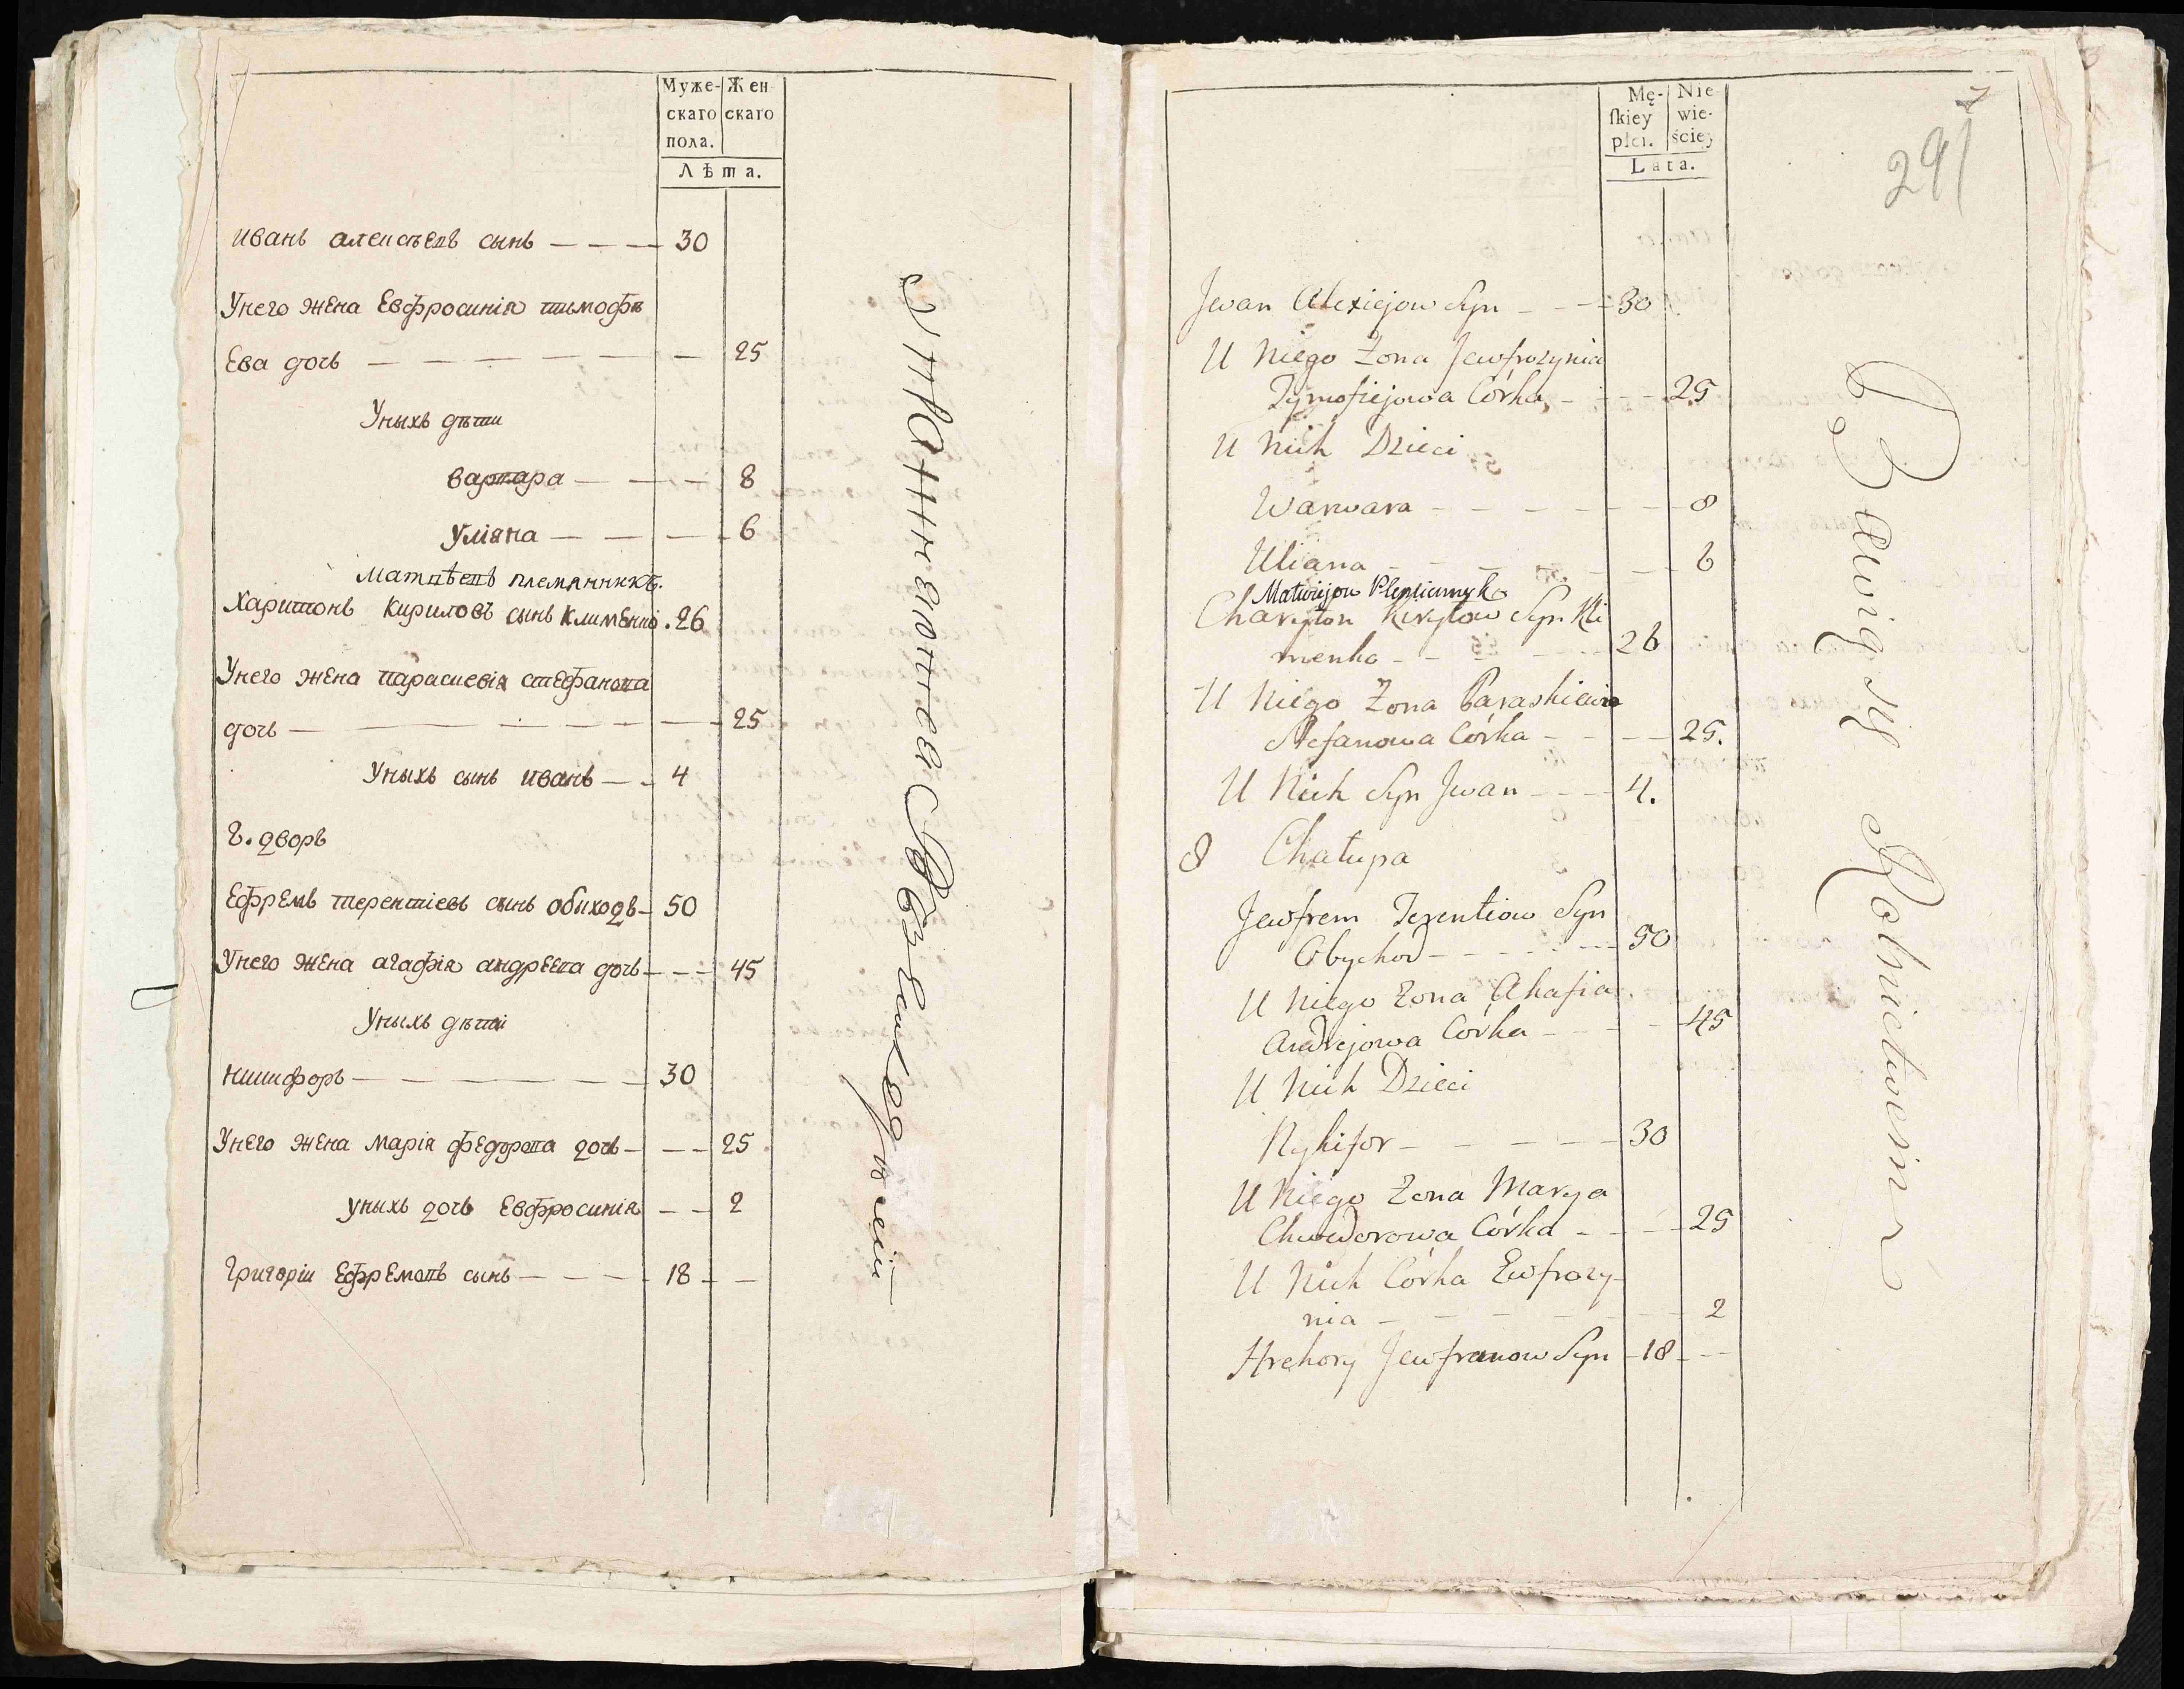 Муже- Жен-
скаго скаго
пола.
Лѣта.
иванъ алексѣевъ сынъ — — — 30
Унего жена Евфросинія тимофѣ
Ева дочь — — — — — — 25
Уныхъ дѣти
варвара — — — 8
уліяна — — — 6
Матвѣевъ племянникъ.
Харитонъ кириловъ сынъ клименко. 26
Унего жена парасиевія стефанова
дочь — — — — — — 25
Уныхъ сынъ иванъ — — 4
8. дворъ
Ефремъ терентіевъ сынъ обиходъ — 50
Унего жена агафія андреева дочь — — — 45
Уныхъ дѣти
никифоръ — — — — — — 30
Унего жена марія федорова дочь — — — 25
уныхъ дочь Евфросинія — — 2
григоріи Ефремовъ сынъ — — — 18 — —
Mę- Nie-
skiey wie-
płci. ściey
Lata.
291
Jwan Alexiejow Syn — — — 30
U Niego Żona Jewfrozynia
Tymofiejowa Córka — — — 25
U Nich Dzieci
Warwara — — — — — — 8
Uliana — — — — — 6
Matwiejow Plemiennyk
Charyton Kiryłow Syn Kli
menko — — — — — 26
U Niego Żona Paraskiewia
Stefanowa Córka — — — — 25.
U Nich Syn Jwan — — — 4.
8 Chałupa
Jewfrem Terentiow Syn
Obychod — — — — — 50
U Niego Żona Ahafia
Andrejowa Córka — — — — 45
U Nich Dzieci
Nykifor — — — — — 30
U Niego Żona Marya
Chwedorowa Córka — — — — 25
U Nich Córka Ewfrozy-
nia — — — — — — 2
Hrehory Jewframow Syn — 18 — —
Bawią się Rolnictwem